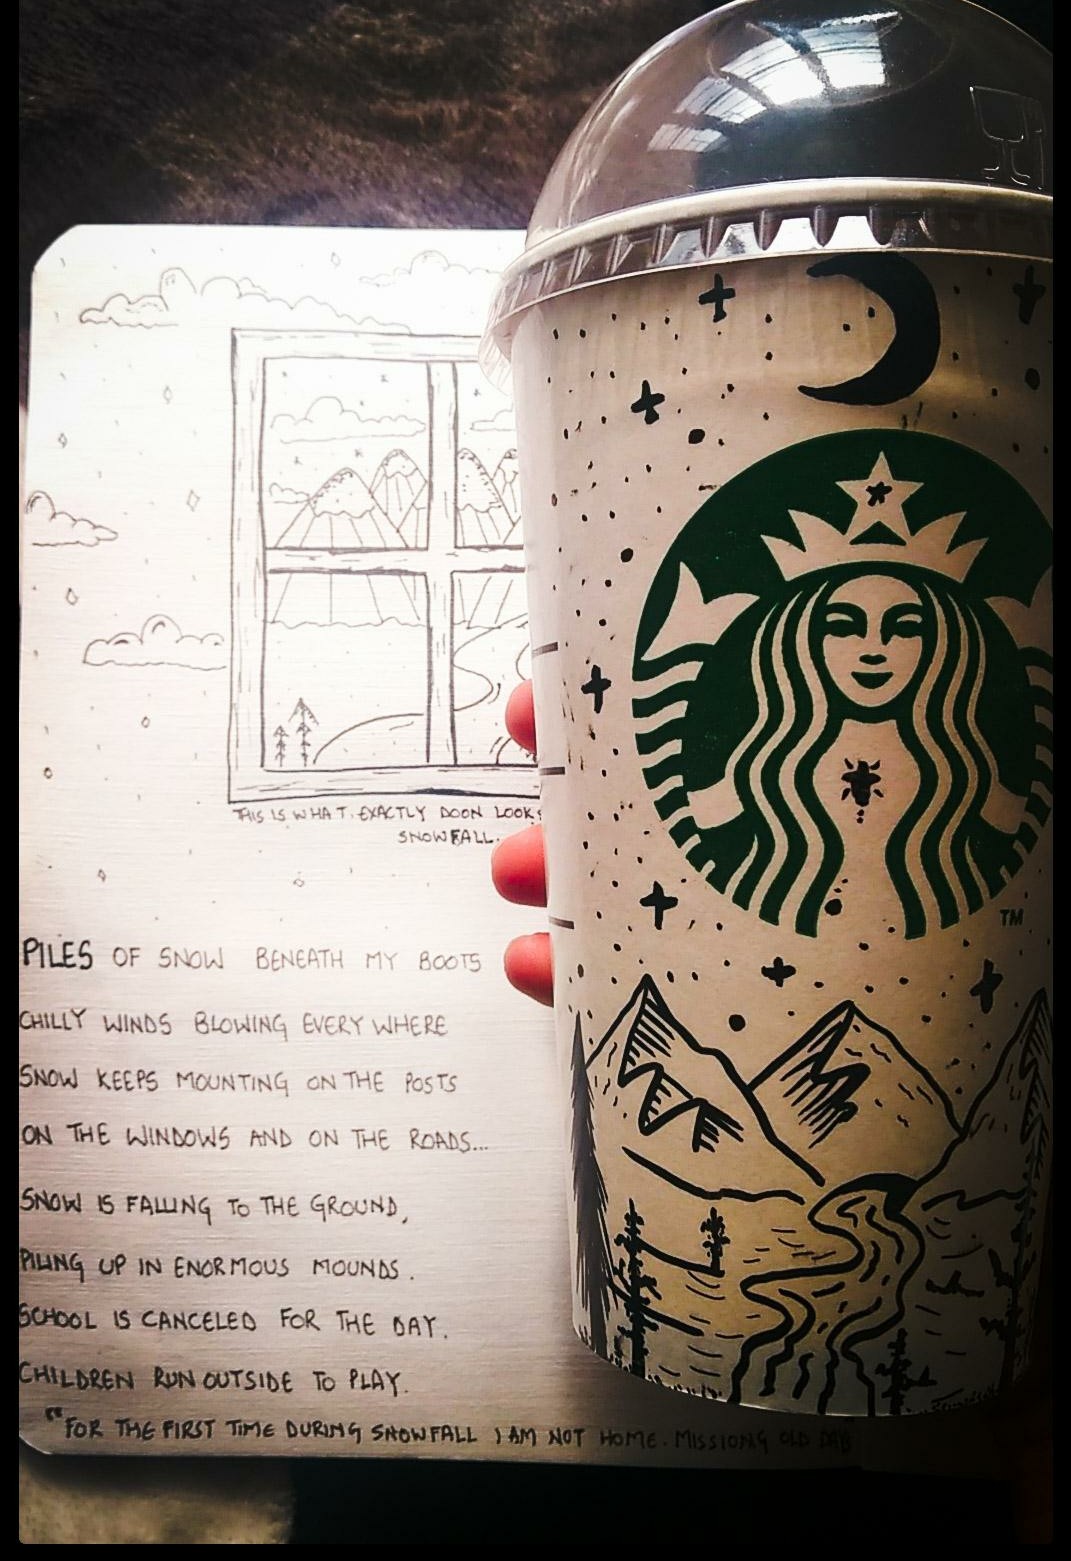 THIS IS WHAT EXACTLY DOON LOOKS
SNOWFALL.
PILES OF SNOW BENEATH MY BOOTS
CHILLY WINDS BLOWING EVERYWHERE
SNOW KEEPS MOUNTING ON THE POSTS
ON THE WINDOWS AND ON THE ROADS...
SNOW IS FALLING TO THE GROUND,
PILING UP IN ENORMOUS MOUNDS.
SCHOOL IS CANCELED FOR THE DAY.
CHILDREN RUN OUTSIDE TO PLAY.
"FOR THE FIRST TIME DURING SNOWFALL I AM NOT HOME. MISSIONG OLD DAYS
TM